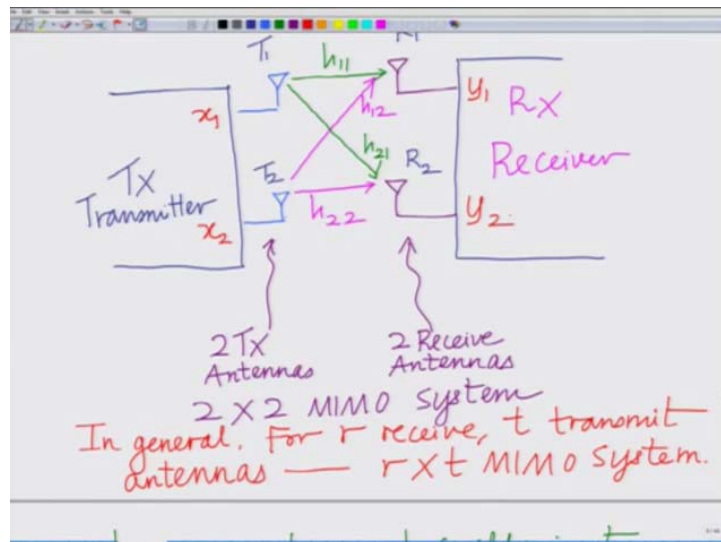 T1
R1
h11
x1
h12
y1
Rx
h21
T2
R2
Receiver
Tx
Transmitter
x2
h22
y2.
2 Tx
Antennas
2 Receive
Antennas
2 X 2 MIMO System
In general. For r receive, t transmit
antennas — r x t MIMO System.